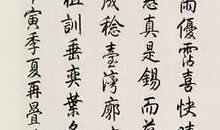 雨優霑喜快晴
慈真是錫而
成稔臺灣廓
祖訓垂奕葉
寅季夏再疊